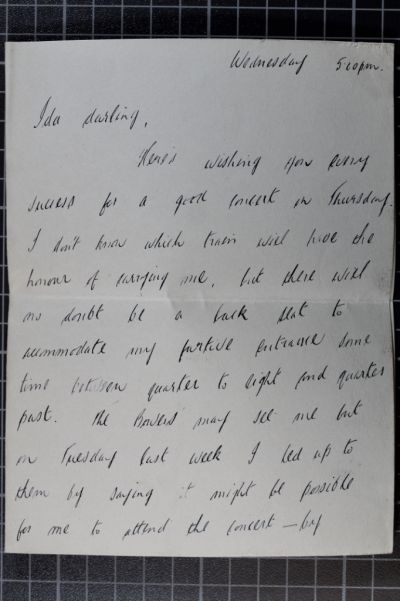 Wednesday 5.10pm.
Ida darling,
Here's wishing you every
success for a good concert on Thursday.
I don't know which train will have the
honour of carrying me, but there will
no doubt be a back seat to
accommodate my furtive entrance some
time between quarter to eight and quarter
past. The Bowers may see me but
on Tuesday last week I led up to
them by saying it might be possible
for me to attend the concert — by